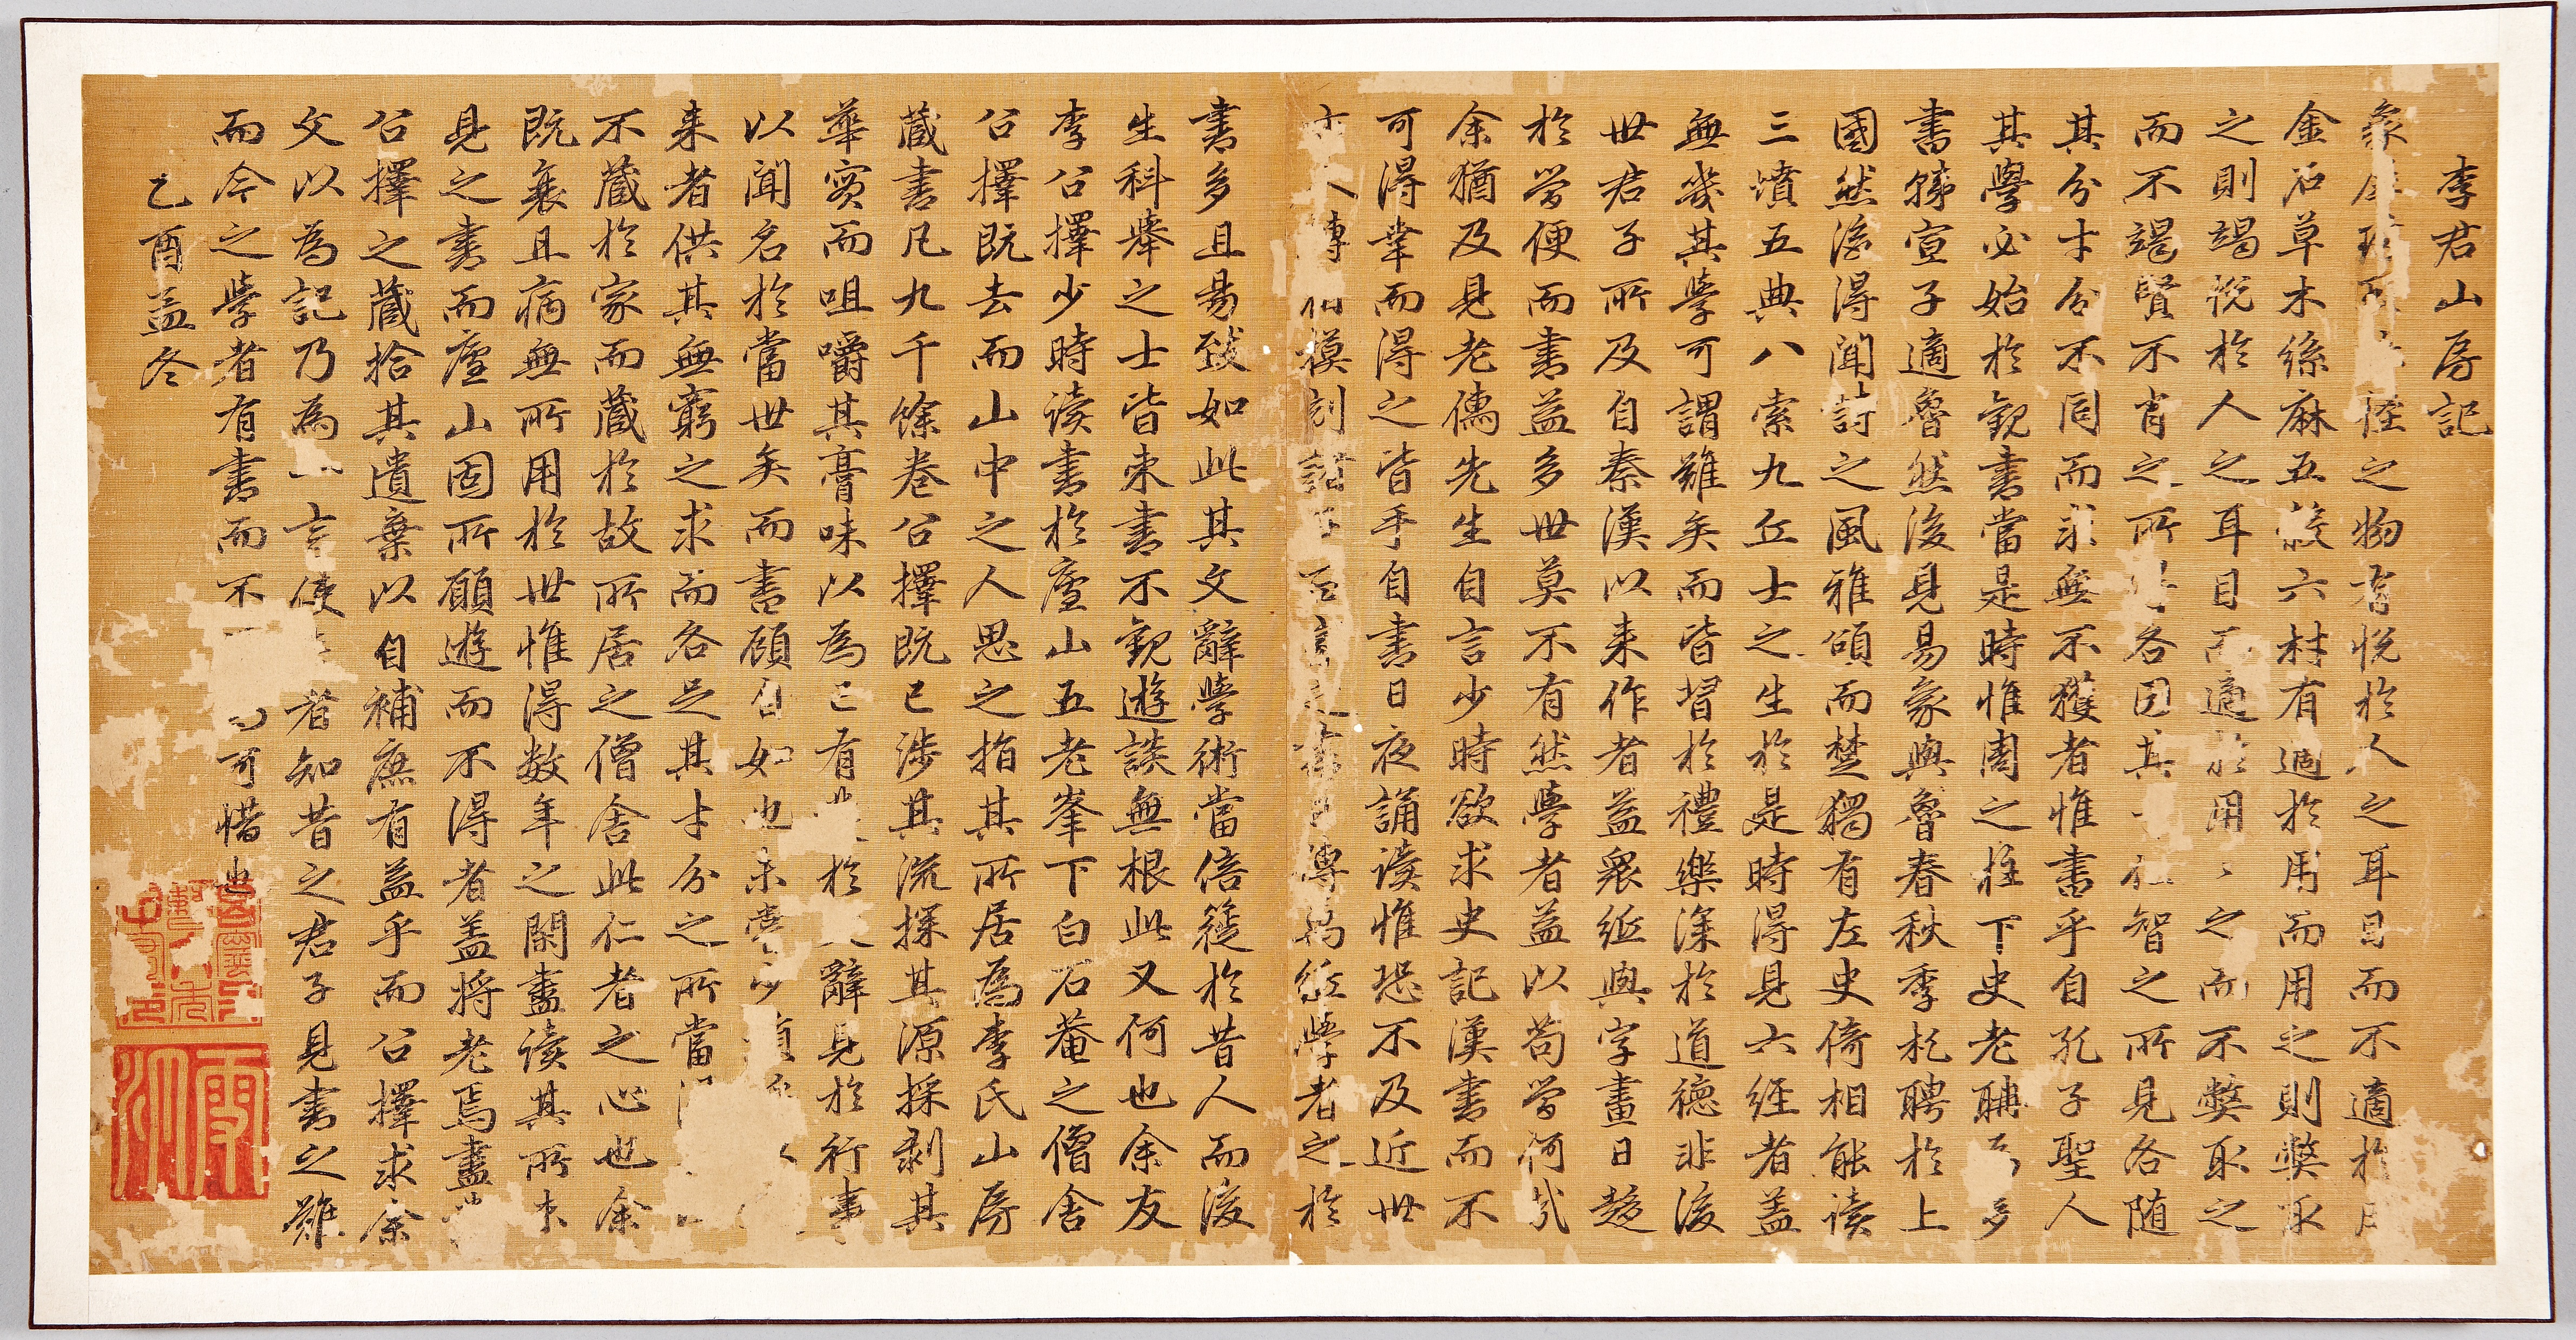 李君山房記
象 之物有悅於人之耳目而不適於用
金石草木絲麻五穀六材有適於用而用之則弊取
之則竭悅於人之耳目而適於用用之而不弊取之
而不竭賢不肖之所 各因其 智之所見各隨
其分才分不同而求無不獲者惟書乎自孔子聖人
其學必始於觀書當是時惟周之柱下史老聃 多
書韓宣子適魯然後見易象與魯春秋季札聘於上
國然後得聞詩之風雅頌而楚獨有左史倚相能讀
三墳五典八索九丘士之生於是時得見六經者蓋
無幾其學可謂難矣而皆習於禮樂深於道德非後
世君子所及自秦漢以来作者益衆紙與字畫日趍
於簡便而書益多世莫不有然學者益以苟簡何哉
余猶及見老儒先生自言少時欲求史記漢書而不
可得幸而得之皆手自書日夜誦讀惟恐不及近世
人轉相模刻諸 百家之書 傳 紙學者之於
書多且易致如此其文辭學術當倍蓰於昔人而後
生科舉之士皆束書不觀遊談無根此又何也余友
李公擇少時讀書於廬山五老峯下白石菴之僧舍
公擇既去而山中之人思之指其所居為李氏山房
藏書凡九千餘卷公擇既已涉其流探其源採剥其
華實而咀嚼其膏味以為己有 於 辭見於行事
以聞名於當世矣而書顧自如也未嘗少
来者供其無窮之求而各足其才分之所當
不藏於家而藏於故所居之僧舍此仁者之心也余
既衰且病無所用於世惟得数年之閑盡讀其所未
見之書而廬山固所願遊而不得者蓋将老焉盡
公擇之藏拾其遺棄以自補庶有益乎而公擇求余
文以為記乃為一言使 者知昔之君子見書之難
而今之學者有書而不 可惜也
乙酉孟冬